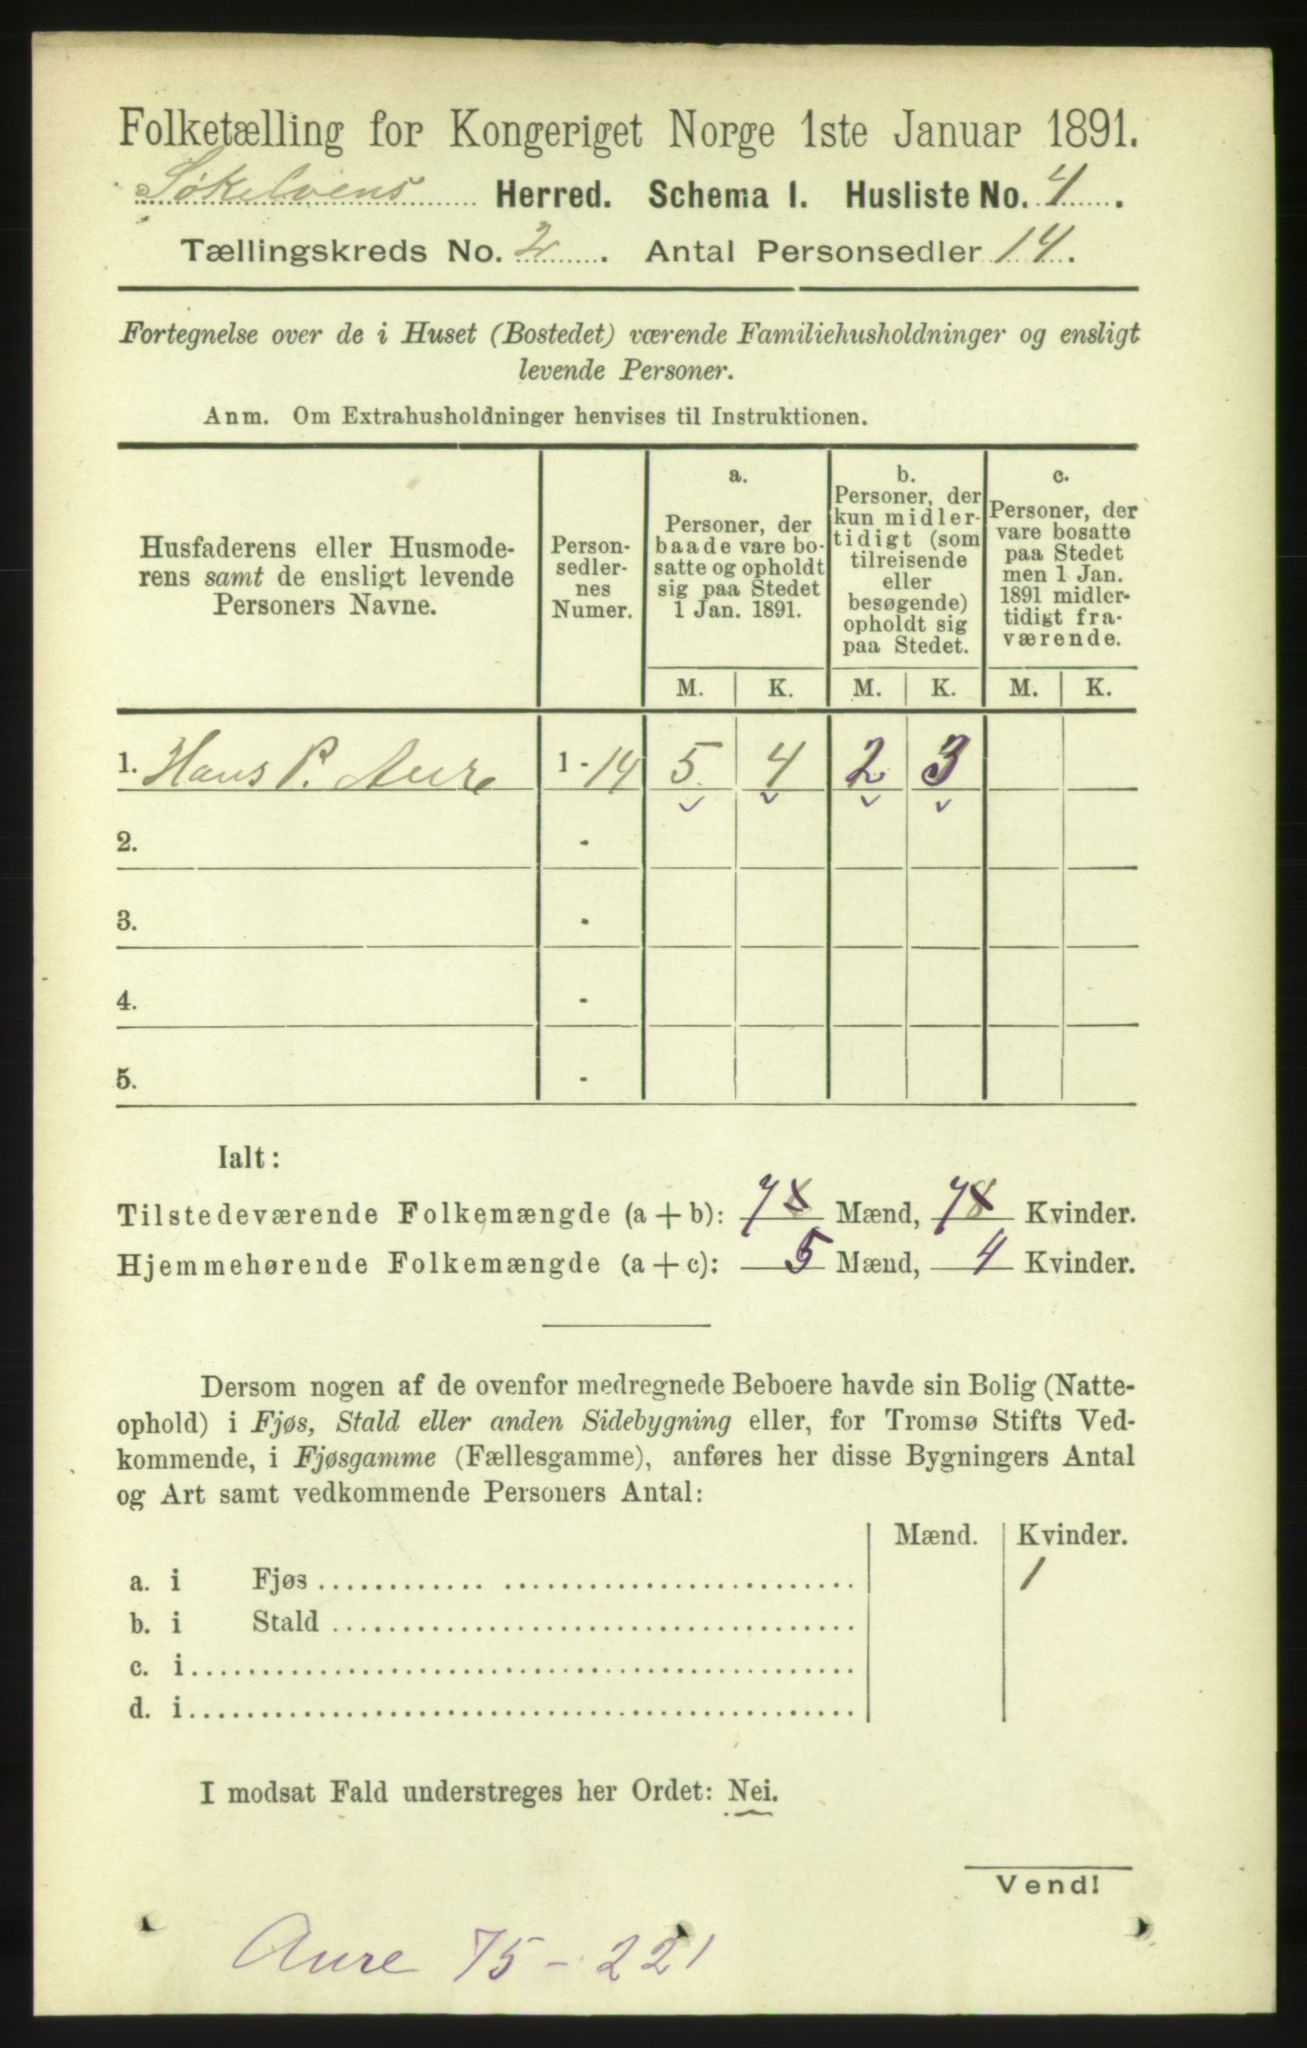 Folketælling for Kongeriget Norge 1ste Januar 1891.
Søkelvens Herred. Schema I. Husliste No. 4.
Tællingskreds No. 2. Antal Personsedler 14.
Fortegnelse over de i Huset (Bostedet) værende Familiehusholdninger og ensligt
levende Personer.
Anm. Om Extrahusholdninger henvises til Instruktionen.
Husfaderens eller Husmode-
rens samt de ensligt levende
Personers Navne.
Person-
sedler-
nes
Numer.
a.
Personer, der
baade vare bo-
satte og opholdt
sig paa Stedet
1 Jan. 1891.
b.
Personer, der
kun midler-
tidigt (som
tilreisende
eller
besøgende)
opholdt sig
paa Stedet.
c.
Personer, der
vare bosatte
paa Stedet
men 1 Jan.
1891 midler-
tidigt fra-
værende.
M. K. M. K. M. K.
1. Hans P. Aure 1 - 14 5 4 2 3
2. -
3. -
4. -
5. -
Ialt:
Tilstedeværende Folkemængde (a + b): 7 8 Mænd, 7 8 Kvinder.
Hjemmehørende Folkemængde (a + c): 5 Mænd, 4 Kvinder.
Dersom nogen af de ovenfor medregnede Beboere havde sin Bolig (Natte-
ophold) i Fjøs, Stald eller anden Sidebygning eller, for Tromsø Stifts Ved-
kommende, i Fjøsgamme (Fællesgamme), anføres her disse Bygningers Antal
og Art samt vedkommende Personers Antal:
Mænd. Kvinder.
a. i Fjøs 1
b. i Stald
c. i
d. i
I modsat Fald understreges her Ordet: Nei.
Vend!
Aure 75 - 221